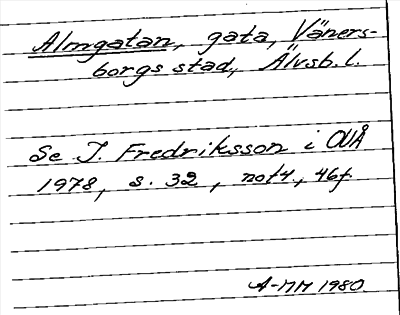 Almgatan, gata, Väners-
borgs stad, Älvsb. l.
Se I. Fredriksson i OUÅ
1978, s. 32, not 4, 46f.
A-MM 1980